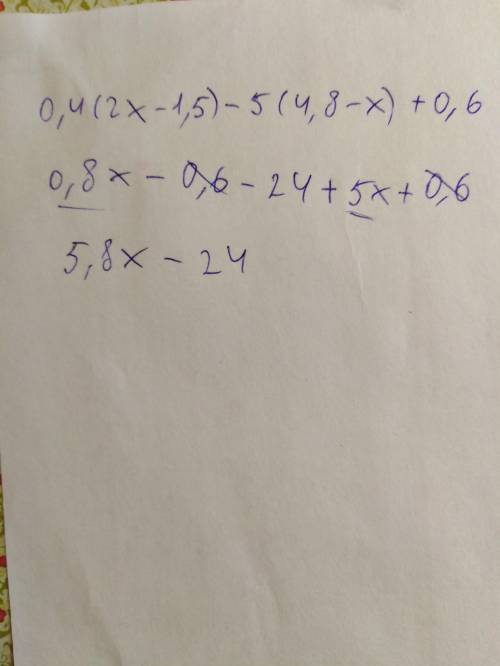 0,4(2x-1,5)-5(4,8-x)+0,6
0,8x-0,6-24+5x+0,6
5,8x-24